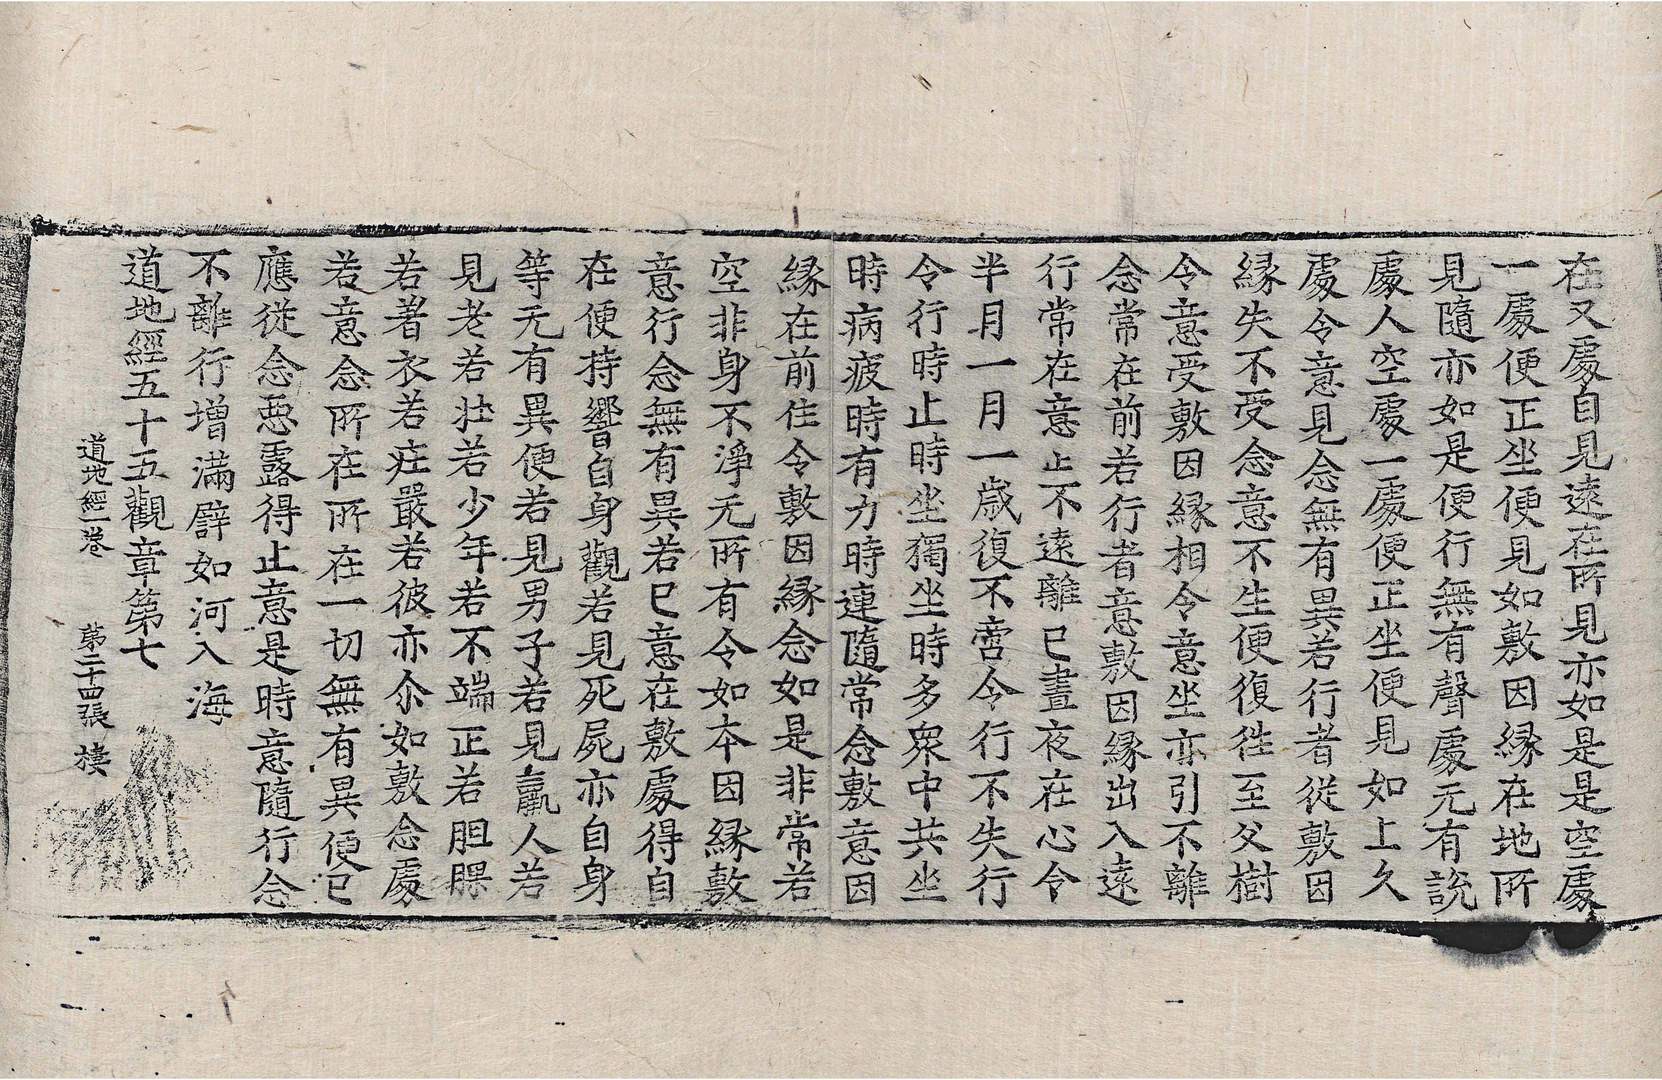 在又處自見遠在所見亦如是是空處
一處便正坐便見如敷因縁在地所
見隨亦如是便行無有聲處无有說
處人空處一處便正坐便見如上久
處令意見念無有異若行者從敷因
縁失不受念意不生便復徃至父樹
令意受敷因縁相令意坐亦引不離
念常在前若行者意敷因縁出入遠
行常在意止不遠離已晝夜在心令
半月一月一歲復不啻令行不失行
令行時止時坐獨坐時多衆中共坐
時病疲時有力時連隨常念敷意因
縁在前住令敷因縁念如是非常若
空非身不淨无所有令如本因縁敷
意行念無有異若已意在敷處得自
在便持響自身觀若見死屍亦自身
等无有異便若見男子若見羸人若
見老若壯若少年若不端正若胆臝
若著衣若疘嚴若彼亦尒如敷念處
若意念所在所在一切無有異便已
應從念惡露得止意是時意隨行念
不離行增滿譬如河入海
道地經五十五觀章第七
道地經一卷 第二十四張 棲